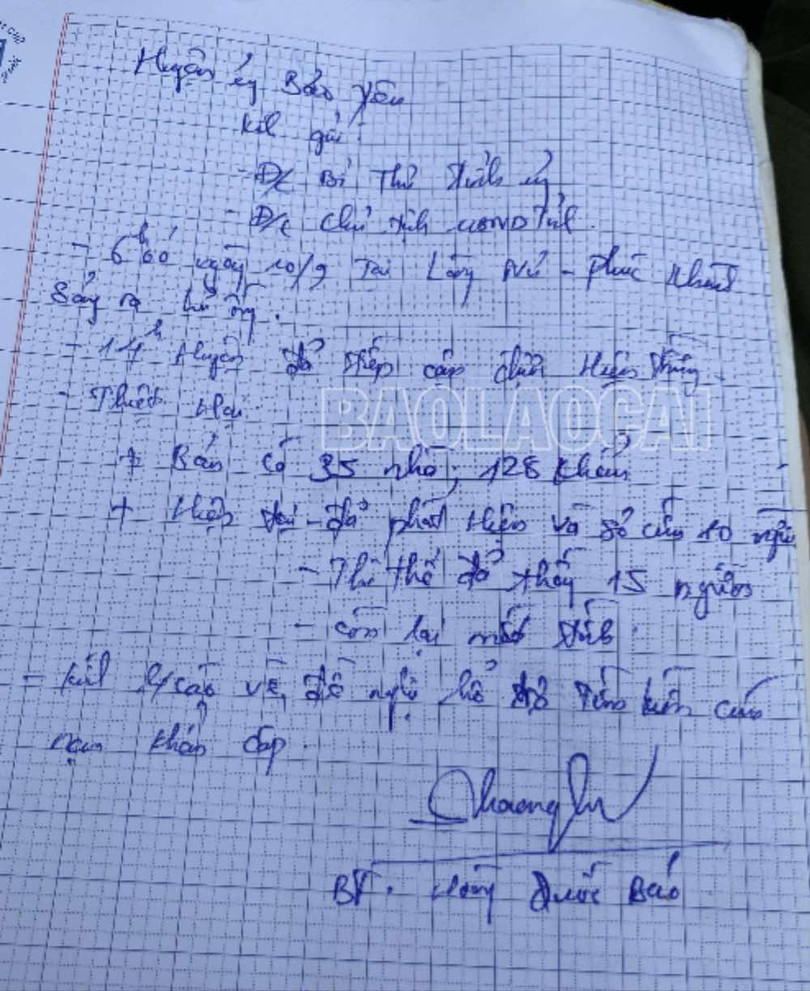 Huyện ủy Bảo Yên
Kính gửi:
- Đ/c Bí Thư tỉnh ủy
- Đ/c Chủ tịch UBND Tỉnh.
- 6h00 ngày 10/9 Tại Làng Nủ - Phúc Khánh
Sảy ra lũ ống.
- 14h Huyện đã tiếp cận được Hiện trường
- Thiệt Hại:
+ Bản có 35 nhà, 128 khẩu
+ Hiện tại - đã phát hiện và sơ cứu 10 người
- Thi thể đã thấy 15 người
- còn lại mất tích.
- Kính b/cáo và đề nghị hỗ trợ tìm kiếm cứu
nạn khẩn cấp.
BT. Hoàng Quốc Bảo
BAOLAOCAI